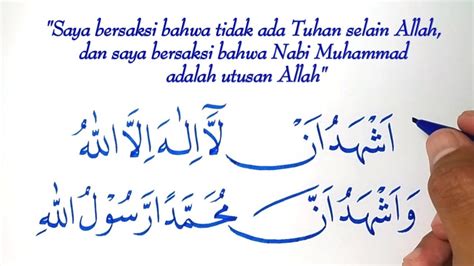 "Saya bersaksi bahwa tidak ada Tuhan selain Allah,
dan saya bersaksi bahwa Nabi Muhammad
adalah utusan Allah"
اَشْهَدُ اَنْ لَآ اِلٰهَ اِلَّا اللهُ
وَاَشْهَدُ اَنَّ مُحَمَّدًا رَسُوْلُ اللهِ